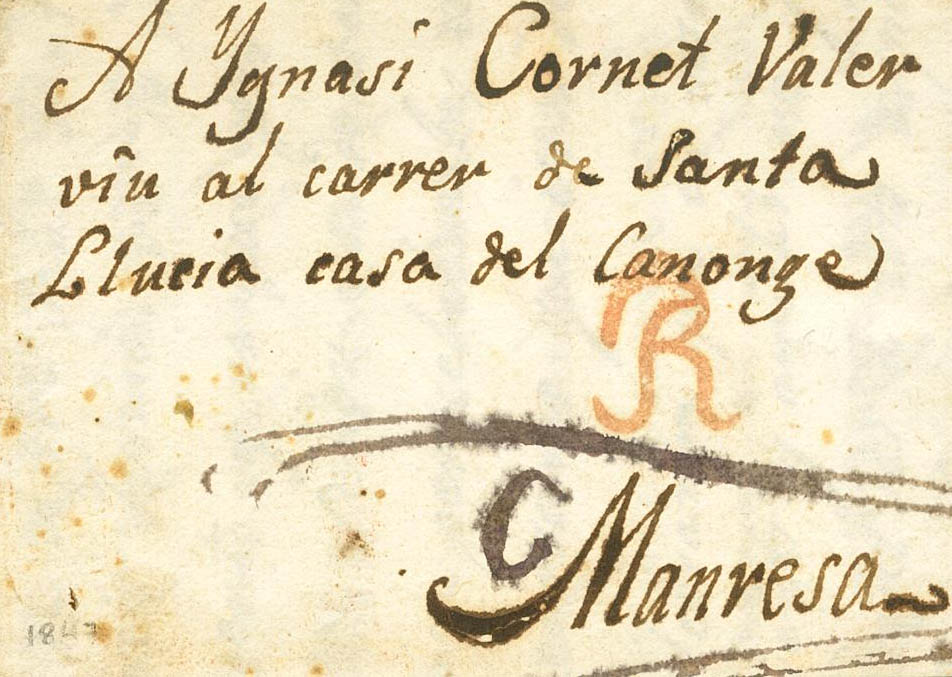 A Ygnasi Cornet Valer
viu al carrer de Santa
Llucia casa del Canonge
R
C
Manresa